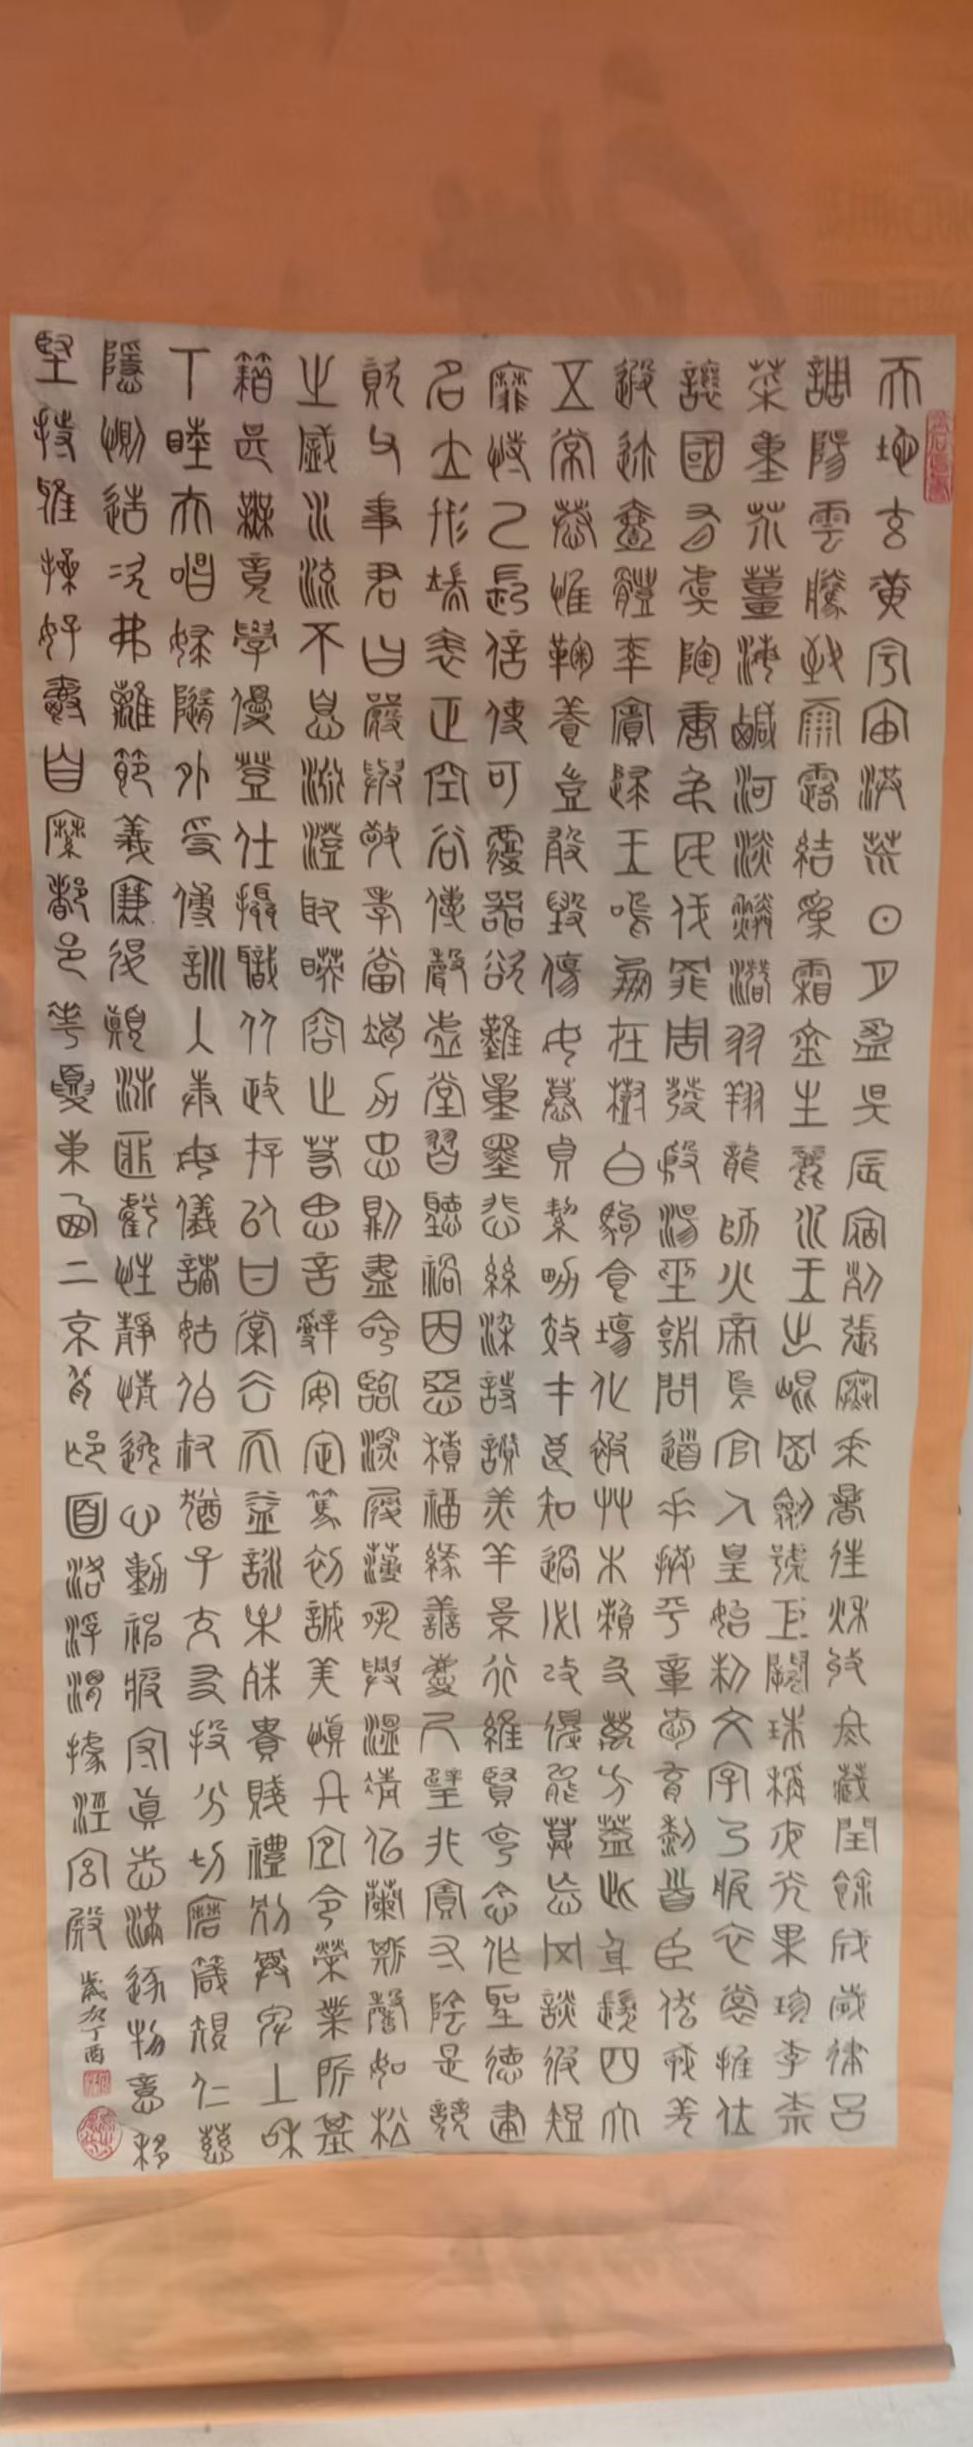 天地玄黃宇宙洪荒日月盈昃辰宿列張寒來暑往秋收冬藏閏餘成歲律呂
調陽雲騰致雨露結為霜金生麗水玉出崑岡劍號巨闕珠稱夜光果珍李柰
菜重芥薑海鹹河淡鱗潛羽翔龍師火帝鳥官人皇始制文字乃服衣裳推位
讓國有虞陶唐弔民伐罪周發殷湯坐朝問道垂拱平章愛育黎首臣伏戎羌
遐邇壹體率賓歸王鳴鳳在樹白駒食場化被草木賴及萬方蓋此身髮四大
五常恭惟鞠養豈敢毀傷女慕貞絜男效才良知過必改得能莫忘罔談彼短
靡恃己長信使可覆器欲難量墨悲絲染詩讚羔羊景行維賢克念作聖德建
名立形端表正空谷傳聲虛堂習聽禍因惡積福緣善慶尺璧非寶寸陰是競
資父事君曰嚴與敬孝當竭力忠則盡命臨深履薄夙興溫凊似蘭斯馨如松
之盛川流不息淵澄取映容止若思言辭安定篤初誠美慎終宜令榮業所基
籍甚無竟學優登仕攝職從政存以甘棠去而益詠樂殊貴賤禮別尊卑上和
下睦夫唱婦隨外受傅訓入奉母儀諸姑伯叔猶子交友投分切磨箴規仁慈
隱惻造次弗離節義廉退顛沛匪虧性靜情逸心動神疲守真志滿逐物意移
堅持雅操好爵自縻都邑華夏東西二京背邙面洛浮渭據涇宮殿
歲次丁酉